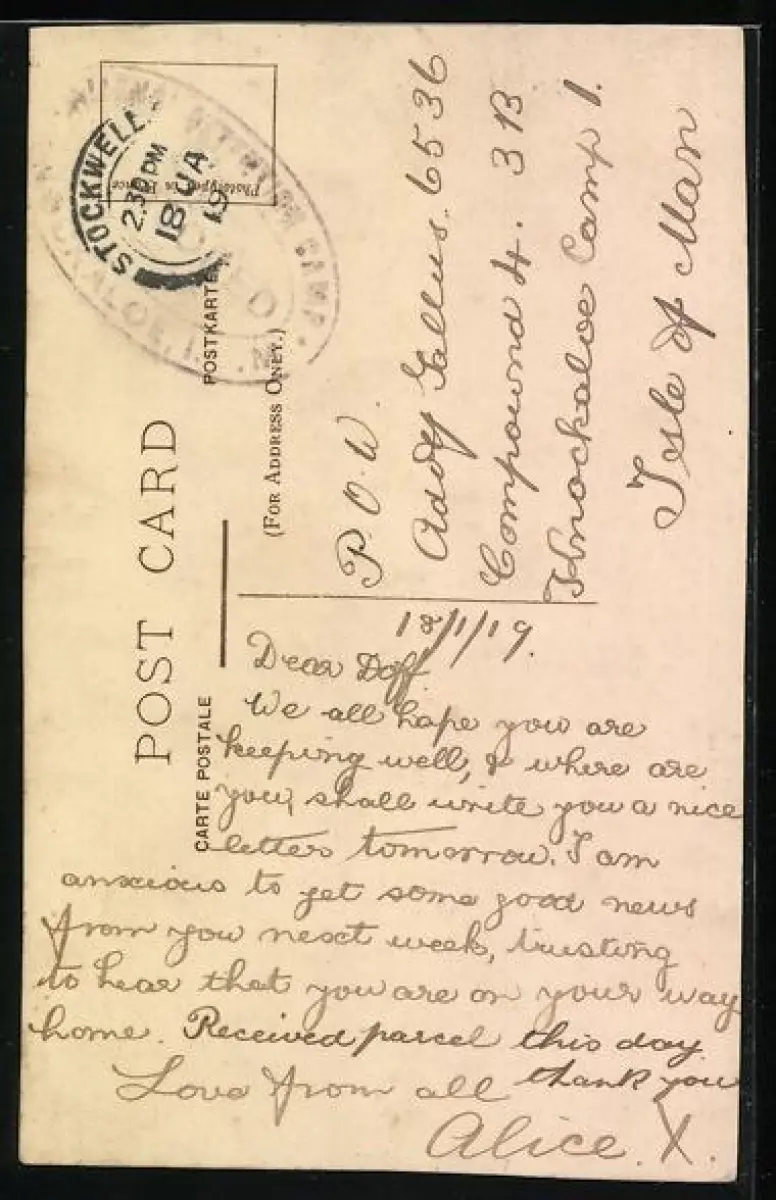 POST CARD
CARTE POSTALE
POSTKARTE
(FOR ADDRESS ONLY.)
STOCKWELL
2.30 PM
18 JA
19
CAMP
P.O.W.
Gallus. 6536
Compound 4. 3B
Knockaloe Camp 1.
Isle of Man
18/1/19.
Dear Doff
We all hope you are
keeping well, & where are
you, shall write you a nice
letter tomorrow. I am
anxious to get some good news
from you next week, trusting
to hear that you are on your way
home. Received parcel this day
thank you
Love from all
Alice. X.